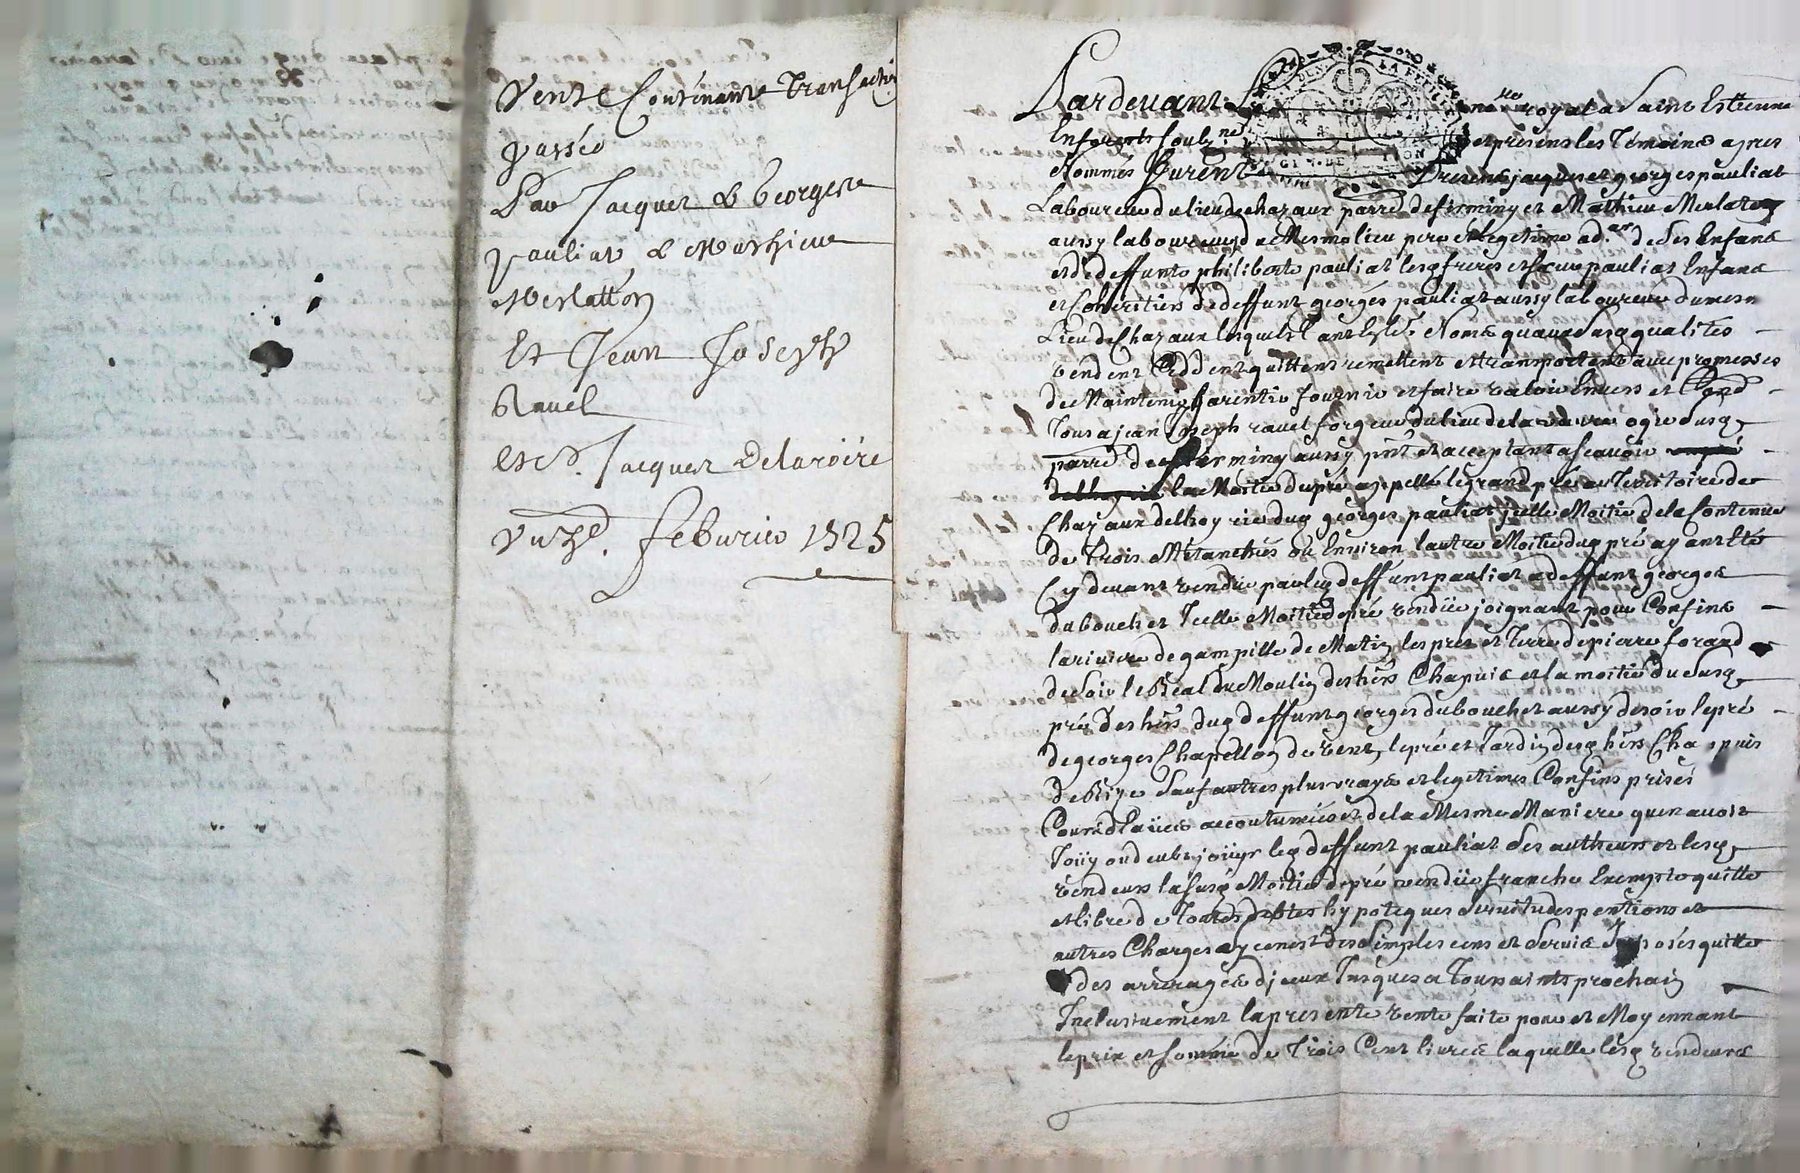 Vente Contenant Transactiõ
passée
Par Jacques & Georges
pauliat & Mathieu
Merlatton
Et Jean Joseph
Ravel
et sr. Jacques Delaroire
Du 7e. feburier 1725
Pardevant le nore royal a Saint Estienne
En forests soubsné et presens les Temoins apres
Nommés furent presens jacques et georges pauliat
Laboureurs du lieu de chazaux parre de firminy et Mathieu Merlaton
aussy laboureur du Mesme lieu pere et legitime adar de ses Enfans
et de deffunte philiberte pauliat lesq freres et sœur pauliat Enfans
et Coheritiers de deffunt georges pauliat aussy laboureur du mesme
Lieu de Chazaux lesquels Noms quaux Susq qualités
vendent Ceddent quittent remettent et transportent avec promesses
de Maintenir Garentir fournir et faire valoir Envers et Contre
Tous a jean joseph ravel forgeur du lieu de la ogie dusq
parre de firminy aussy pnt et acceptant ascavoir
la Moitié du pré appellé le grand pré au Territoire de
Chazaux delhoyrie duq georges pauliat jcelle Moitié de la Contenue
de Trois Metanchés ou Environ lautre Moitié duq pré ayant Eté
Cy devant vendüe par leq deffunt pauliat a deffunt georges
dubouchet Jcelle Moitié de pré vendüe joignant pour Confins
la riviere de gampille de Matin les pres et Terre de pierre forand
de Soir le Béal du Moulin des hers Chapuis et la moitié du Susq
pré des hers duq deffunt georges dubouchet aussy de soir le pré
de georges Chapellon de vent, le pré et Jardin desq hers Chapuis
de Bize Sauf autres plus vrays et legitimes Confins prises
Cours deaües accoutumées et de la Mesme Maniere quen avoit
Joüy ou deub joüyr leq deffunt pauliat Ses autheurs et lesq
vendeurs la susq Moitié de pré vendüe franche Exempte quitte
et libre de Toutes debtes hypoteques Servitudes pentions et
autres Charges sy cenest des Simples cens et Servis Jmposés quitte
des arrerages djceux Jusques a Toussaints prochain
Jnclusivement la presente vente faite pour et Moyennant
le prix et somme de Trois Cent livres laquelle lesq vendeurs